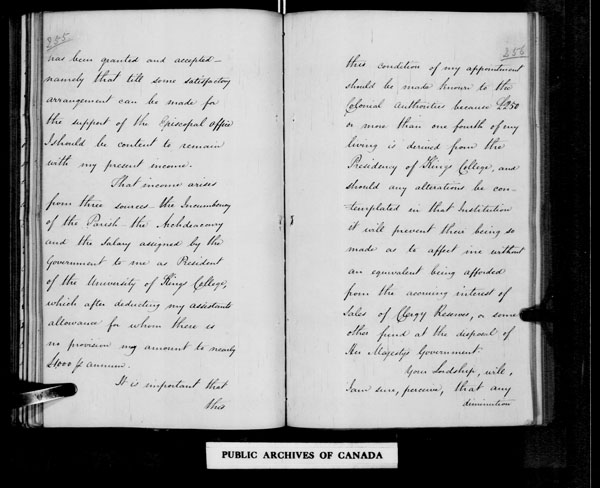 255
has been granted and accepted—
namely that till some satisfactory
arrangement can be made for
the support of the Episcopal office
I should be content to remain
with my present income.
That income arises
from three sources — the Incumbency
of the Parish — the Archdeaconry
and the Salary assigned by the
Government to me as President
of the University of Kings College,
which after deducting my assistants
allowance for whom there is
no provision may amount to nearly
£1000 p annum.
It is important that
this
256
this condition of my appointment
should be made known to the
Colonial Authorities because £250
or more than one fourth of my
living is derived from the
Presidency of Kings College, and
should any alterations be con-
templated in that Institution
it will prevent their being so
made as to affect me without
an equivalent being afforded
from the accruing interest of
Sales of Clergy Reserves, or some
other fund at the disposal of
Her Majestys Government.
Your Lordship, will,
I am sure, perceive, that any
diminution
PUBLIC ARCHIVES OF CANADA